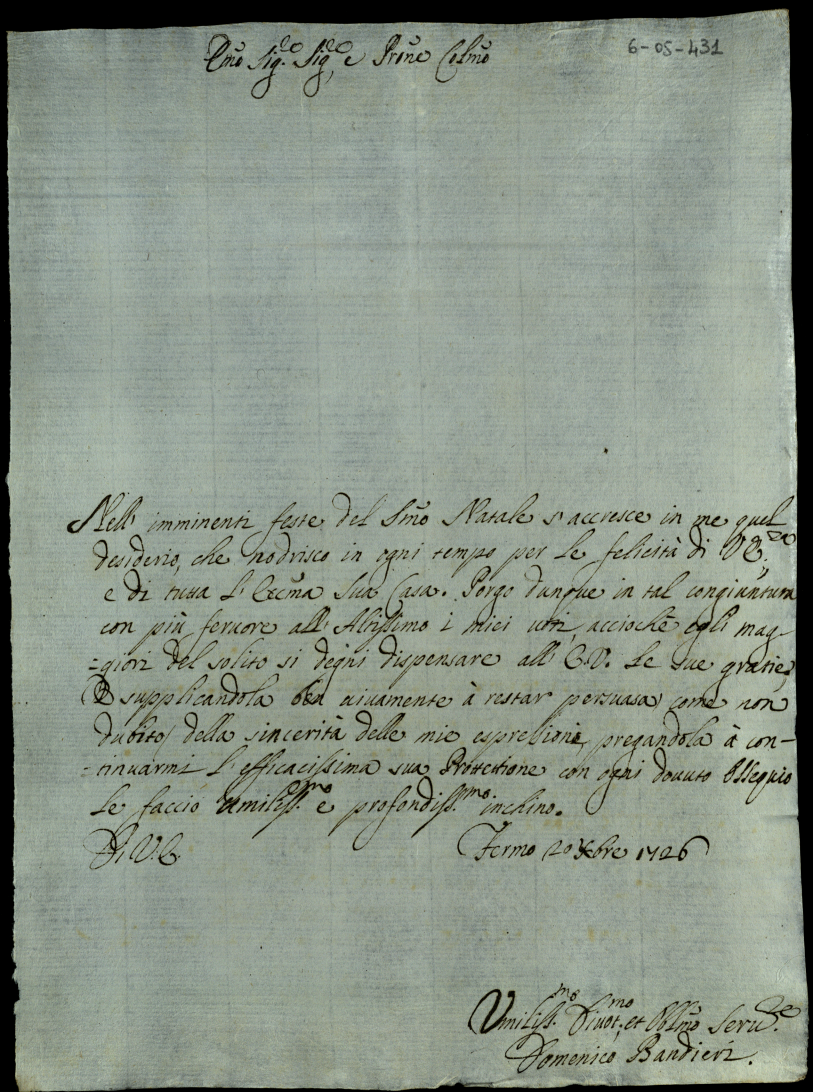 Emõ Sig.re Sig.re e Prõne Colmõ
6-05-431
Nell' imminenti feste del Smõ Natale s'accresce in me quel
desiderio, che nodrisco in ogni tempo per le felicità di V.E.
e di tutta l' Eccm̃a Sua Casa. Porgo dunque in tal congiuntura
con più fervore all' Altissimo i miei voti, acciochè egli mag-
=giori del solito si degni dispensare all' E.V. le sue gratie,
supplicandola ben vivamente à restar persuasa come non
dubito della sincerità delle mie espressioni, pregandola à con-
=tinuarmi l'efficacissima sua Prottettione con ogni dovuto Ossequio
le faccio umiliss.mo e profondiss.mo inchino.
Di V.E. Fermo 20 Xbre 1726
Umiliss.mo Divot.mo, et Obblmõ Seru.re
Domenico Bandieri.